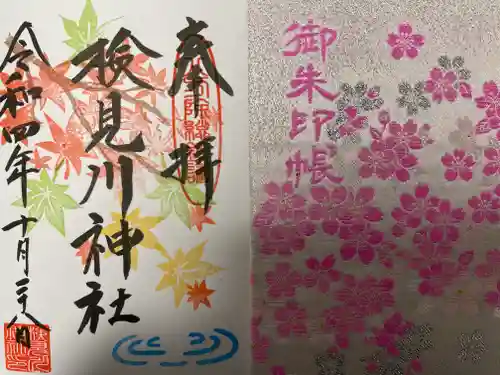 奉拝
検見川神社
令和四年十月二十八日
御朱印帳